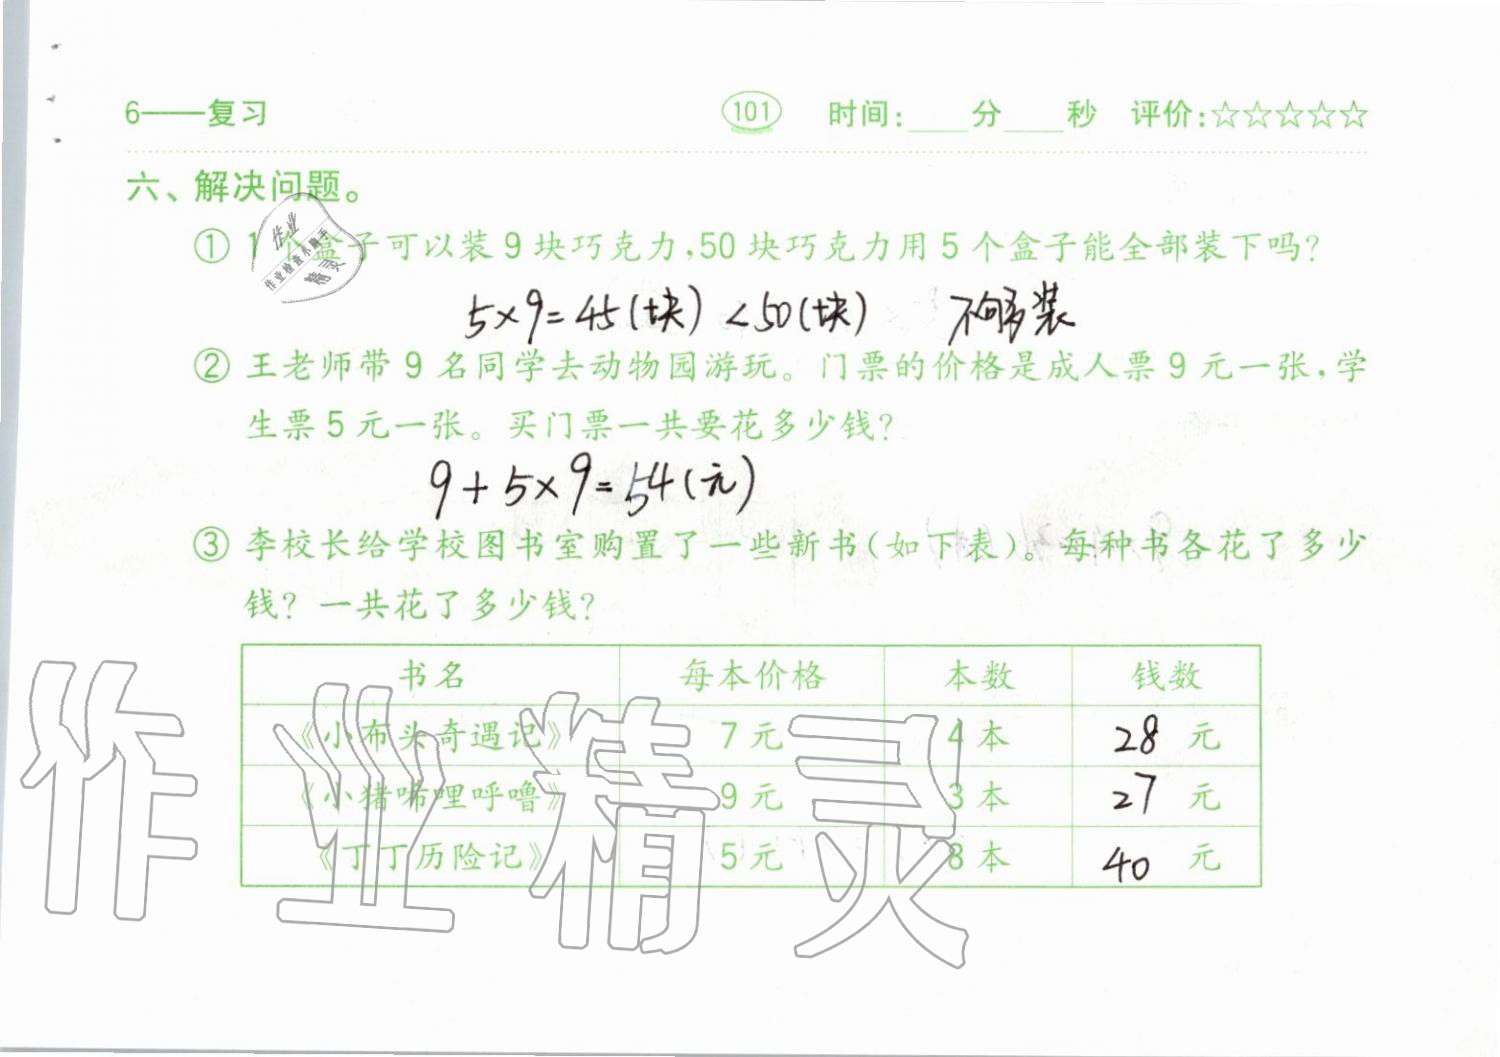 6——复习 101 时间:____分____秒 评价:☆☆☆☆☆
六、解决问题。
① 1个盒子可以装9块巧克力,50块巧克力用5个盒子能全部装下吗?
5×9=45(块) <50(块) 不够装
② 王老师带9名同学去动物园游玩。门票的价格是成人票9元一张,学
生票5元一张。买门票一共要花多少钱?
9+5×9=54(元)
③ 李校长给学校图书室购置了一些新书(如下表)。每种书各花了多少
钱? 一共花了多少钱?
书名 每本价格 本数 钱数
《小布头奇遇记》 7元 4本 28元
《小猪唏哩呼噜》 9元 3本 27元
《丁丁历险记》 5元 8本 40元
作业
作业检查小助手
精灵
作业精灵